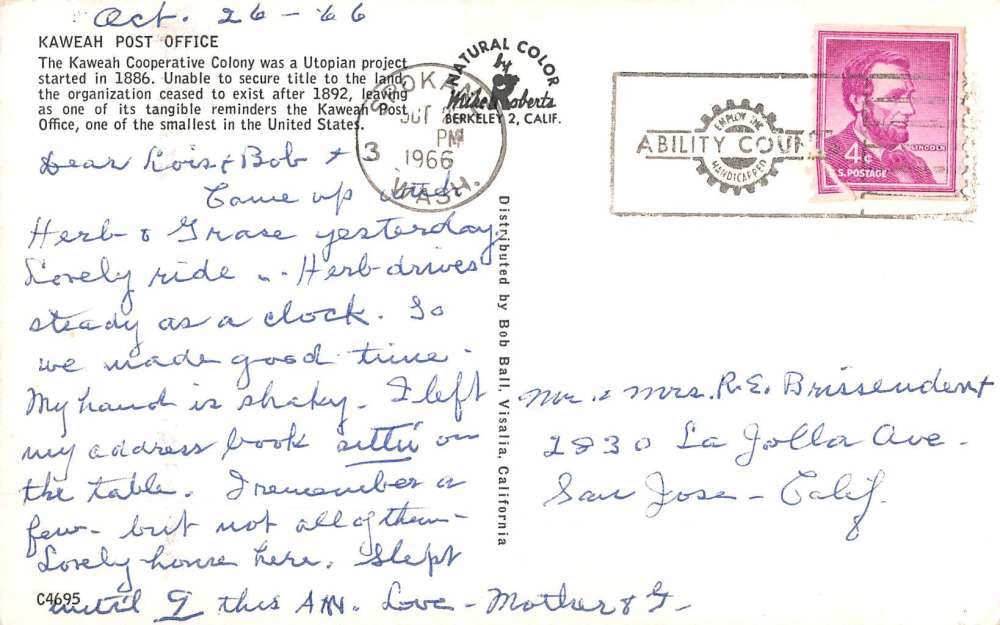 Oct. 26 - '66
KAWEAH POST OFFICE
The Kaweah Cooperative Colony was a Utopian project
started in 1886. Unable to secure title to the land,
the organization ceased to exist after 1892, leaving
as one of its tangible reminders the Kaweah Post
Office, one of the smallest in the United States.
NATURAL COLOR
by
Mike Roberts
BERKELEY 2, CALIF.
SPOKANE
OCT
PM
3
1966
WASH.
EMPLOY THE
ABILITY COUNTS
HANDICAPPED
4¢
LINCOLN
U.S. POSTAGE
Dear Lois & Bob +
Came up with
Herb & Grase yesterday
Lovely ride .. Herb drives
steady as a clock. So
we made good time.
My hand is shaky. I left
my address book sittin' on
the table. I remember a
few - but not all of them -
Lovely home here. Slept
until 9 this AM. Love - Mother & G.
C4695
Distributed by Bob Ball, Visalia, California
Mr. & Mrs. R.E. Brissendent
2930 La Jolla Ave.
San Jose - Calif.